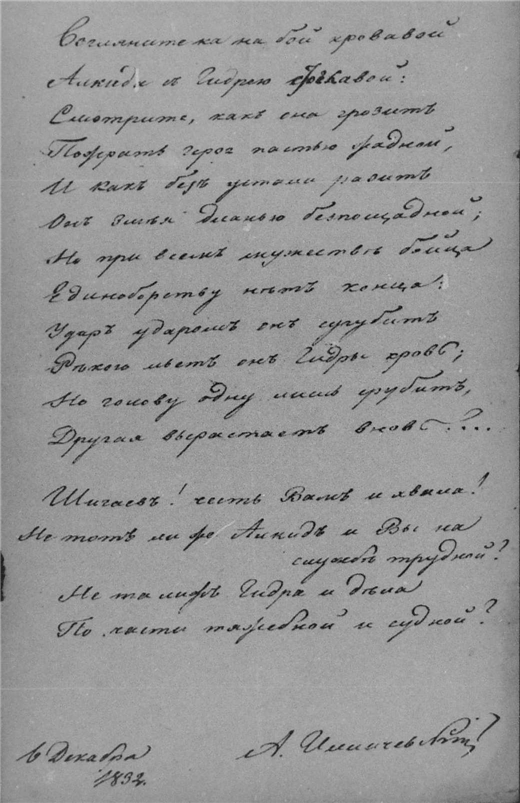 Взгляните ка на бой кровавой
Алкида съ Гидрою лукавой:
Смотрите, какъ она грозитъ
Пожрать героя пастью жадной,
И какъ безъ устали разитъ
Онъ змѣя дланью безпощадной;
Но при всемъ мужествѣ бойца
Единоборству нѣтъ конца:
Ударъ ударомъ онъ сугубитъ
Рѣкою льетъ онъ Гидры кровь;
Но голову одну лишь срубитъ,
Другая вырастаетъ вновь?...
Шигаевъ! честь Вамъ и хвала!
Не тотъ ли же Алкидъ и Вы на
службѣ трудной?
Не та ли жъ Гидра и дѣла
По части тяжебной и судной?
6 Декабря
1832.
А. Илличевскій